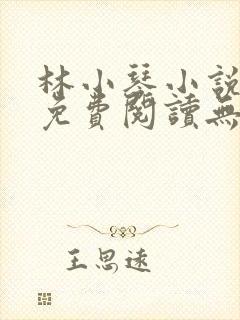 林小琴小說
免費閱讀無
王思遠